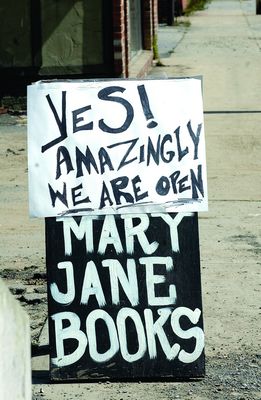 YeS!
AMAZINGLY
WE ARE OPEN
MARY
JANE
BOOKS